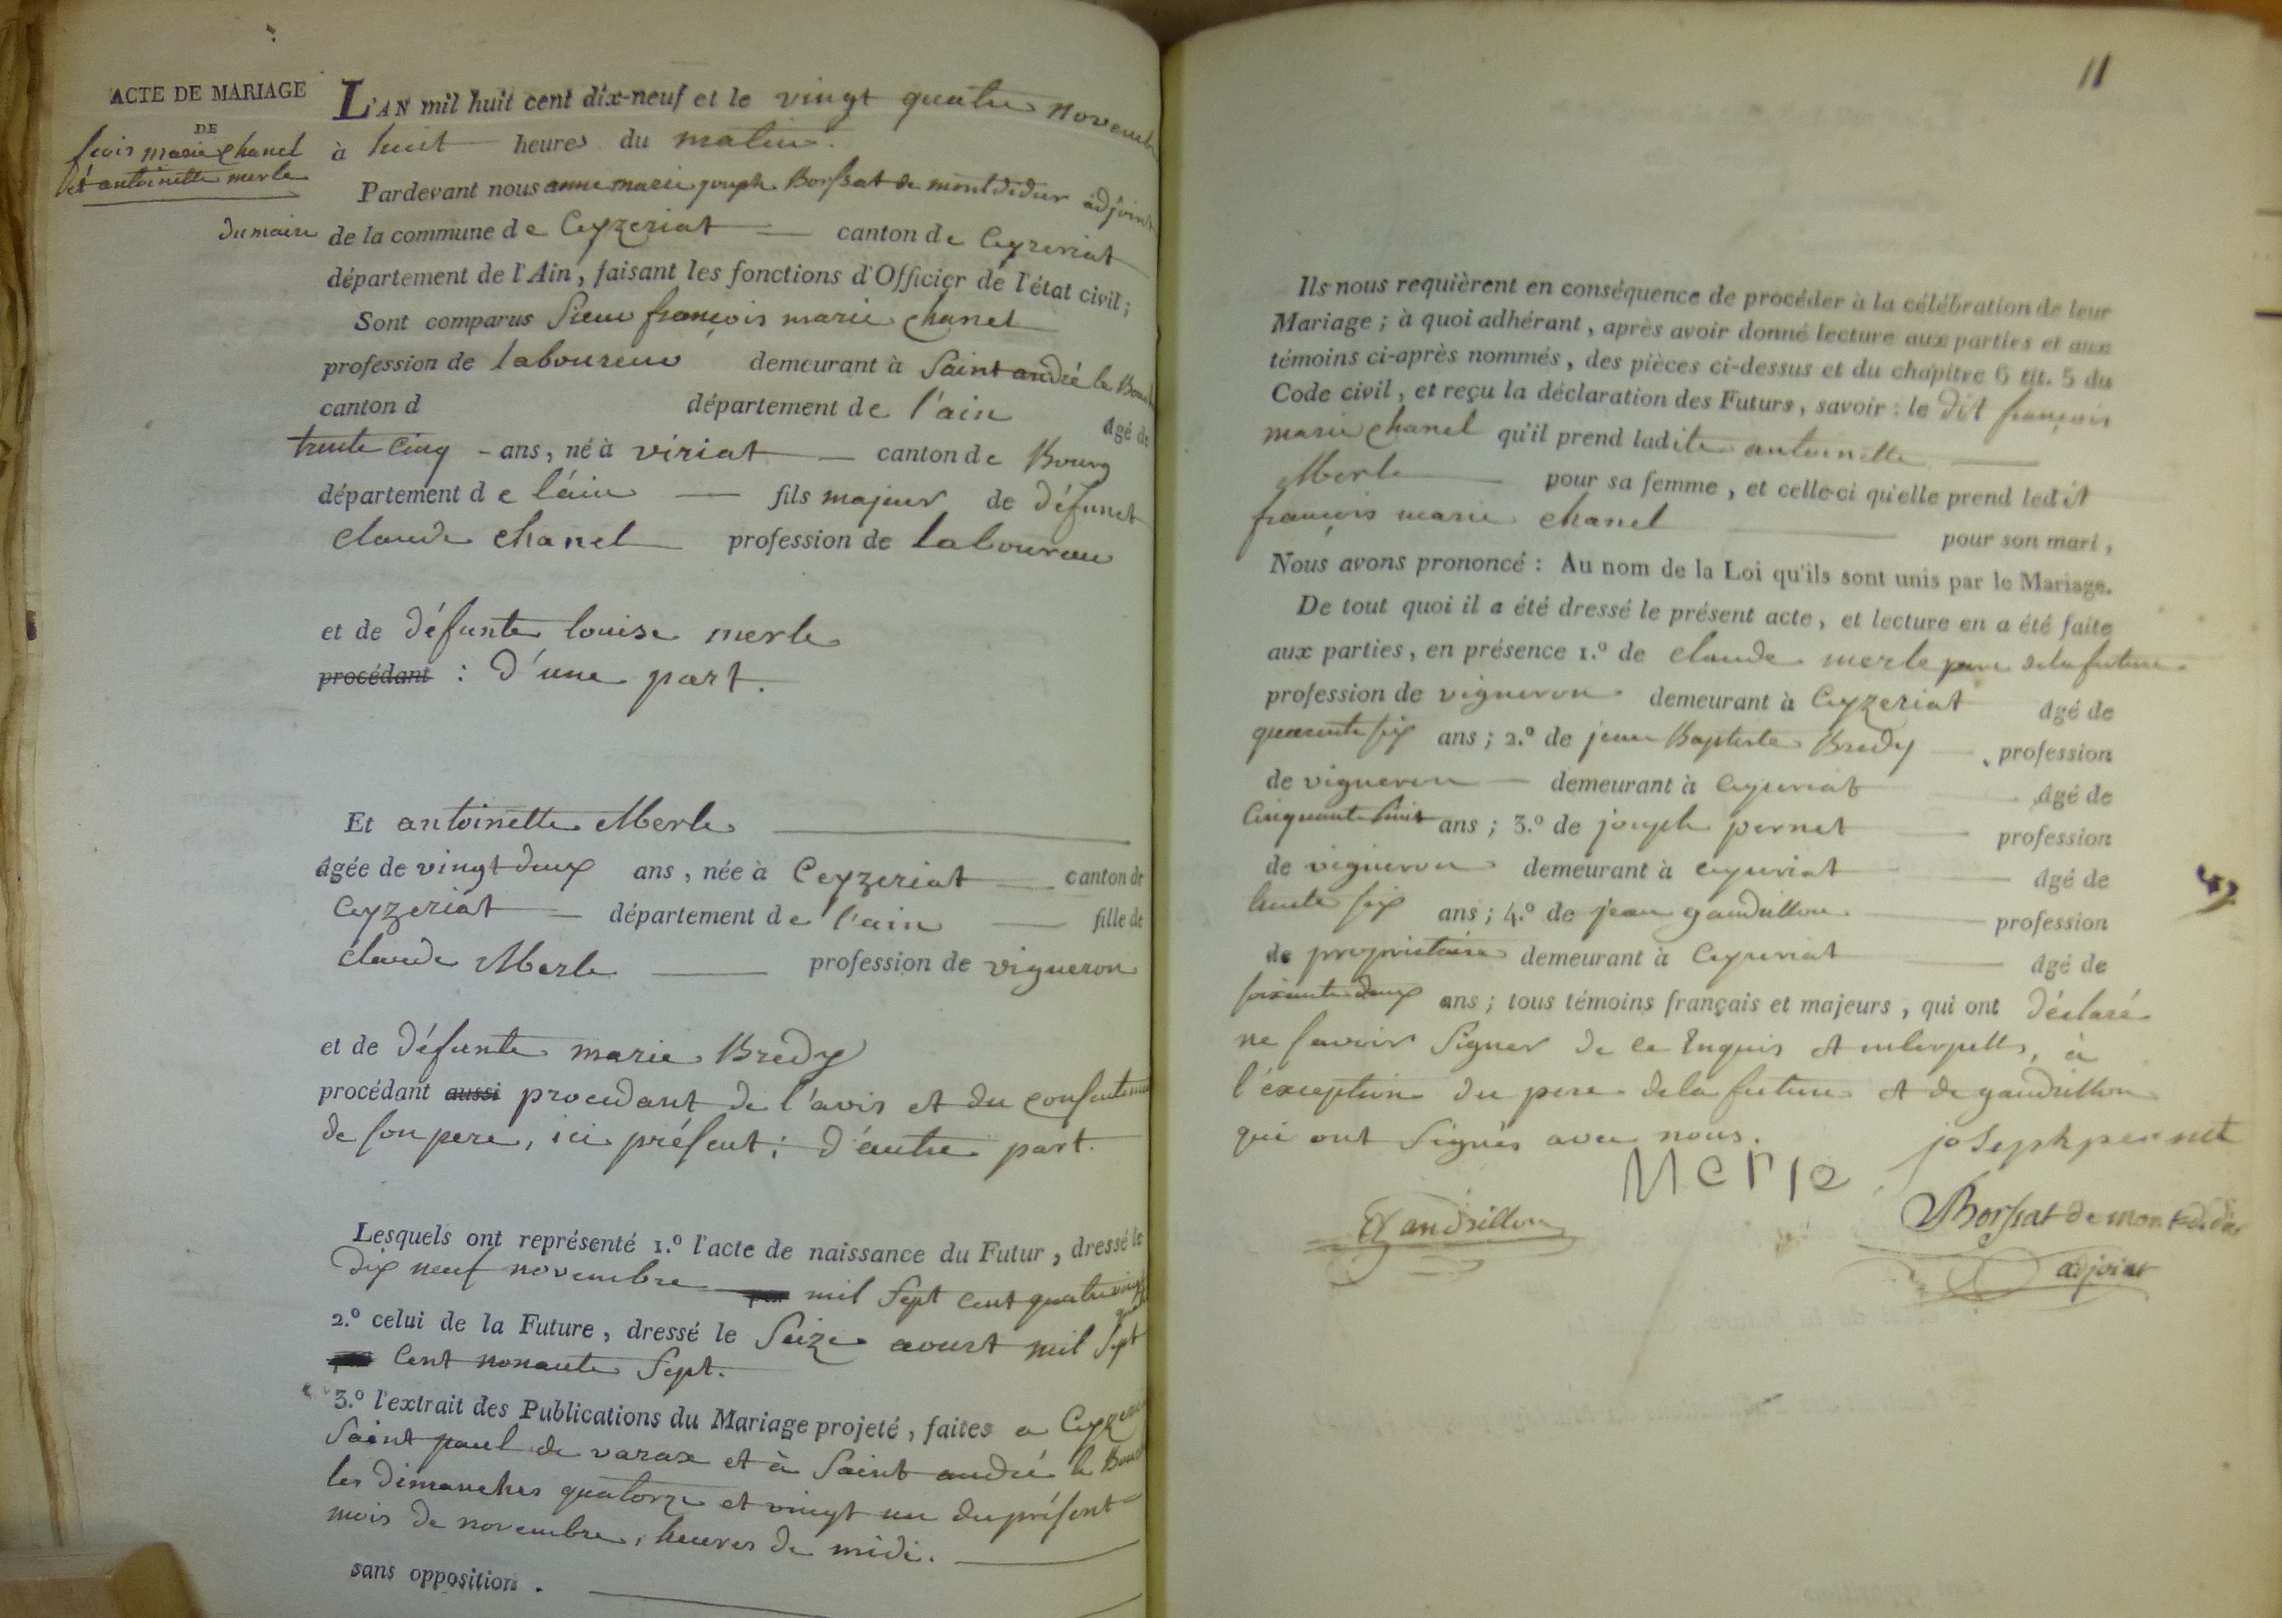 ACTE DE MARIAGE
DE
fcois marie chanel
et antoinette merle
L'AN mil huit cent dix-neuf et le vingt quatre novembre
à huit heures du matin.
Pardevant nous anne marie joseph Borssat de montdidier adjoint
du maire de la commune de Ceyzeriat canton de Ceyzeriat
département de l'Ain, faisant les fonctions d'Officier de l'état civil;
Sont comparus Sieur françois marie chanel
profession de laboureur demeurant à Saint andré le Bouch
canton d département de l'ain âgé de
trente cinq ans, né à viriat canton de Bourg
département de l'ain fils majeur de défunct
claude chanel profession de laboureur
et de défunte louise merle
procédant : d'une part.
Et antoinette Merle
âgée de vingt deux ans, née à Ceyzeriat canton de
Ceyzeriat département de l'ain fille de
claude Merle profession de vigneron
et de défunte marie Bredy
procédant aussi procedant de l'avis et du consentement
de son pere, ici présent; d'autre part.
Lesquels ont représenté 1.º l'acte de naissance du Futur, dressé le
dix neuf novembre mil sept cent quatre vingt
quatre
2.º celui de la Future, dressé le Seize aoust mil Sept
Cent nonante Sept.
3.º l'extrait des Publications du Mariage projeté, faites a Ceyzeriat
Saint paul de varax et à Saint andré le Bouch
les dimanches quatorze et vingt un du présent
mois de novembre, heures de midi.
sans opposition.
11
Ils nous requièrent en conséquence de procéder à la célébration de leur
Mariage; à quoi adhérant, après avoir donné lecture aux parties et aux
témoins ci-après nommés, des pièces ci-dessus et du chapitre 6 tit. 5 du
Code civil, et reçu la déclaration des Futurs, savoir: le dit françois
marie chanel qu'il prend ladite antoinette
Merle pour sa femme, et celle-ci qu'elle prend ledit
françois marie chanel pour son mari,
Nous avons prononcé: Au nom de la Loi qu'ils sont unis par le Mariage.
De tout quoi il a été dressé le présent acte, et lecture en a été faite
aux parties, en présence 1.º de claude merle pere de la future
profession de vigneron demeurant à Ceyzeriat âgé de
quarante six ans; 2.º de jean Baptiste Bredy profession
de vigneron demeurant à Ceyzeriat âgé de
Cinquante huit ans; 3.º de joseph pernet profession
de vigneron demeurant à ceyzeriat âgé de
trente six ans; 4.º de jean gaudrillon profession
de propriétaire demeurant à Ceyzeriat âgé de
soixante deux ans; tous témoins français et majeurs, qui ont déclaré
ne savoir Signer de ce Enquis et interpellés, à
l'exception du pere de la future et de gaudrillon
qui ont Signés avec nous.
joseph pernet
Merle
Gaudrillon
Borssat de montdidier
adjoint